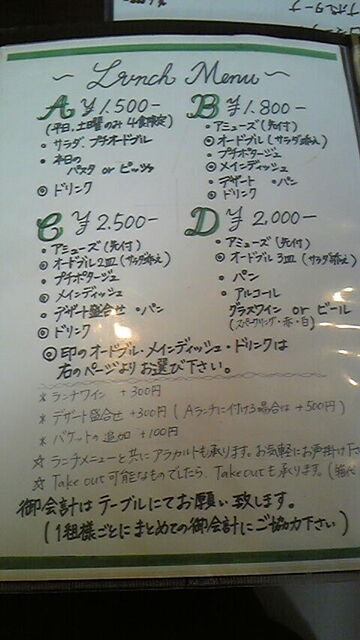 ~ Lunch Menu ~
A ¥1.500-
(平日、土曜のみ 4食限定)
・サラダ、プチオードブル
・本日の
パスタ or ピッツァ
◎ドリンク
B ¥1.800-
・アミューズ(先付)
◎オードブル(サラダ添え)
・プチポタージュ
◎メインディッシュ
・デザート ・パン
◎ドリンク
C ¥2.500-
・アミューズ(先付)
◎オードブル2皿(サラダ添え)
・プチポタージュ
◎メインディッシュ
・デザート盛合せ ・パン
◎ドリンク
D ¥2.000-
・アミューズ(先付)
◎オードブル3皿(サラダ添え)
・パン
・アルコール
グラスワイン or ビール
(スパークリング・赤・白)
◎印のオードブル・メインディッシュ・ドリンクは
右のページよりお選び下さい。
＊ランチワイン +300円
＊デザート盛合せ +300円(Aランチに付ける場合は+500円)
＊バゲットの追加 +100円
☆ランチメニューと共にアラカルトも承ります。お気軽にお声掛け下
☆Take out可能なものでしたら、Take outも承ります。(
御会計はテーブルにてお願い致します。
(1組様ごとにまとめての御会計にご協力下さい)